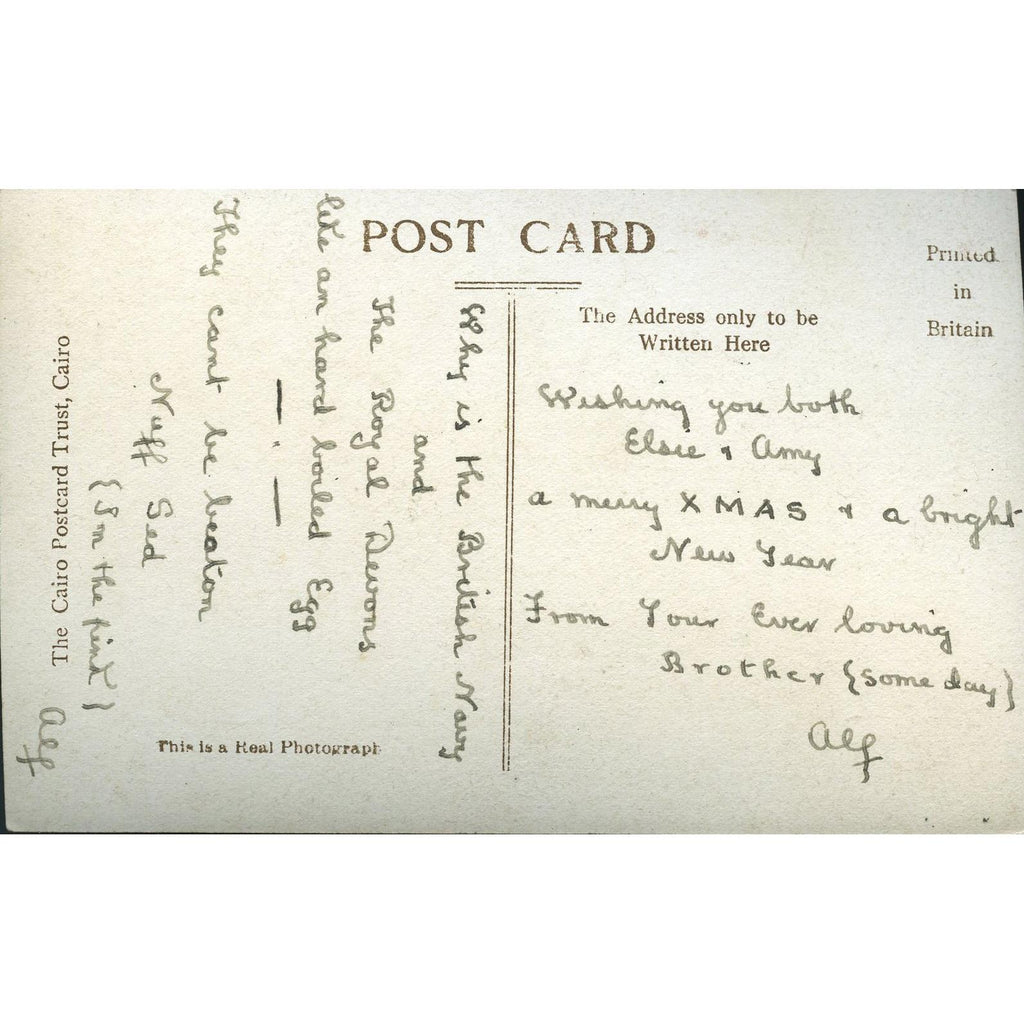 POST CARD
Printed
in
Britain
The Address only to be
Written Here
Wishing you both
Elsie & Amy
a merry XMAS & a bright
New Year
From Your Ever loving
Brother {some day}
Alf
Why is the British Navy
and
The Royal Devons
like an hard boiled Egg
— . —
They cant be beaton
Nuff Sed
{I'm the pint}
Alf
The Cairo Postcard Trust, Cairo
This is a Real Photograph